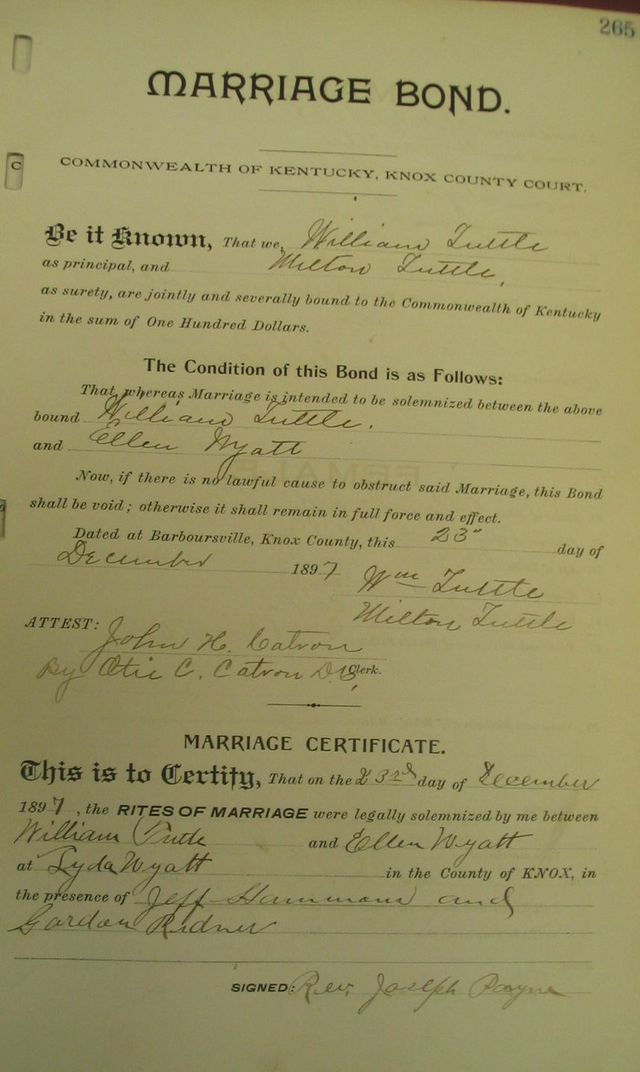 265
MARRIAGE BOND.
C
COMMONWEALTH OF KENTUCKY, KNOX COUNTY COURT.
Be it Known, That we, William Tuttle
as principal, and Milton Tuttle,
as surety, are jointly and severally bound to the Commonwealth of Kentucky
in the sum of One Hundred Dollars.
The Condition of this Bond is as Follows:
That whereas Marriage is intended to be solemnized between the above
bound William Tuttle,
and Ellen Wyatt
Now, if there is no lawful cause to obstruct said Marriage, this Bond
shall be void; otherwise it shall remain in full force and effect.
Dated at Barboursville, Knox County, this 23" day of
December 1897
Wm Tuttle
Milton Tuttle
ATTEST:
John H. Catron
By Otis C. Catron D.C. Clerk.
MARRIAGE CERTIFICATE.
This is to Certify, That on the 23rd day of December
1897, the RITES OF MARRIAGE were legally solemnized by me between
William Tutle and Ellen Wyatt
at Lyda Wyatt in the County of KNOX, in
the presence of Jeff Hammons and
Gordon Ridner
SIGNED: Rev. Joseph Payne